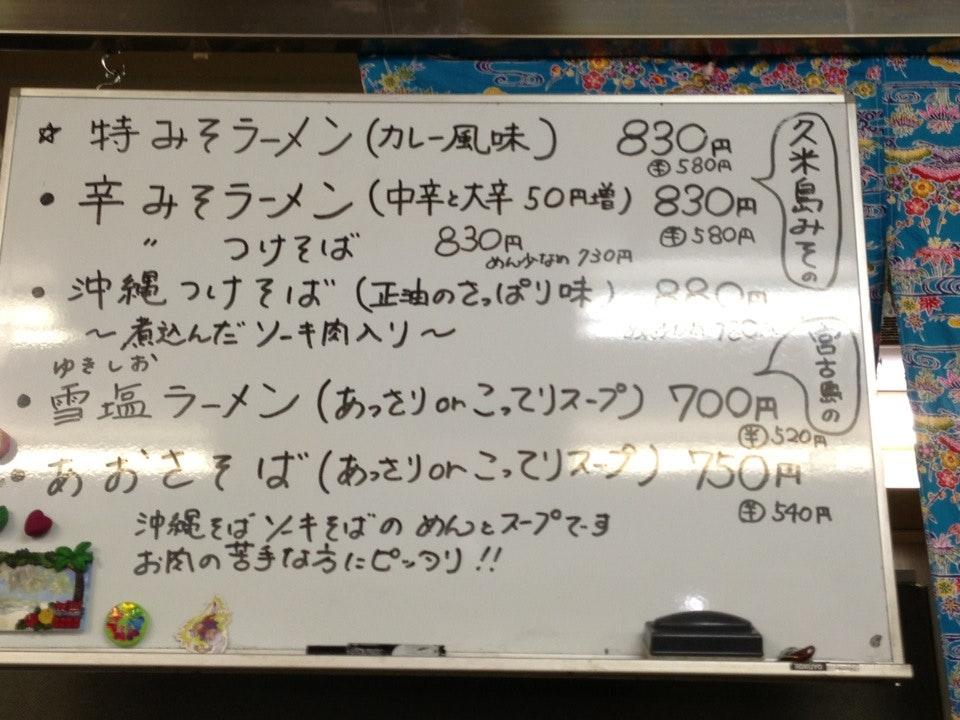 ☆ 特みそラーメン(カレー風味) 830円
㊌580円
久米島みその
• 辛みそラーメン(中辛と大辛50円増) 830円
〃 つけそば 830円
めん少なめ 730円
• 沖縄つけそば(正油のさっぱり味) 880円
~煮込んだソーキ肉入り~
宮古島の
ゆきしお
• 雪塩ラーメン(あっさりorこってりスープ) 700円
半520円
• あおさそば(あっさりorこってりスープ) 750円
半540円
沖縄そばソーキそばのめんとスープです
お肉の苦手な方にピッタリ!!